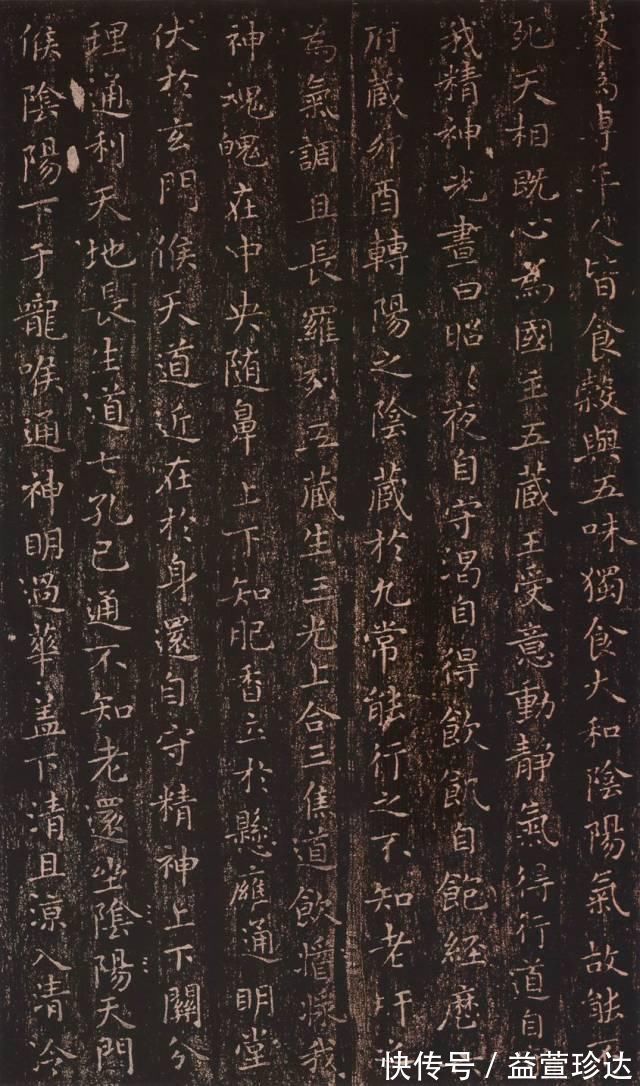 為專年人皆食穀與五味獨食大和陰陽氣故能
死天相既心為國主五藏王受意動靜氣得行道自
我精神光晝日昭〻夜自守渴自得飲飢自飽經歷
府藏卯酉轉陽之陰藏於九常能行之不知老肝
為氣調且長羅列五藏生三光上合三焦道飲醬漿我
神魂魄在中央随鼻上下知肥香立於懸雍通明堂
伏於玄門候天道近在於身還自守精神上下關分
理通利天地長生道七孔已通不知老還坐陰陽天門
候陰陽下于嚨喉通神明過華蓋下清且涼入清泠
快传号／益萱珍达